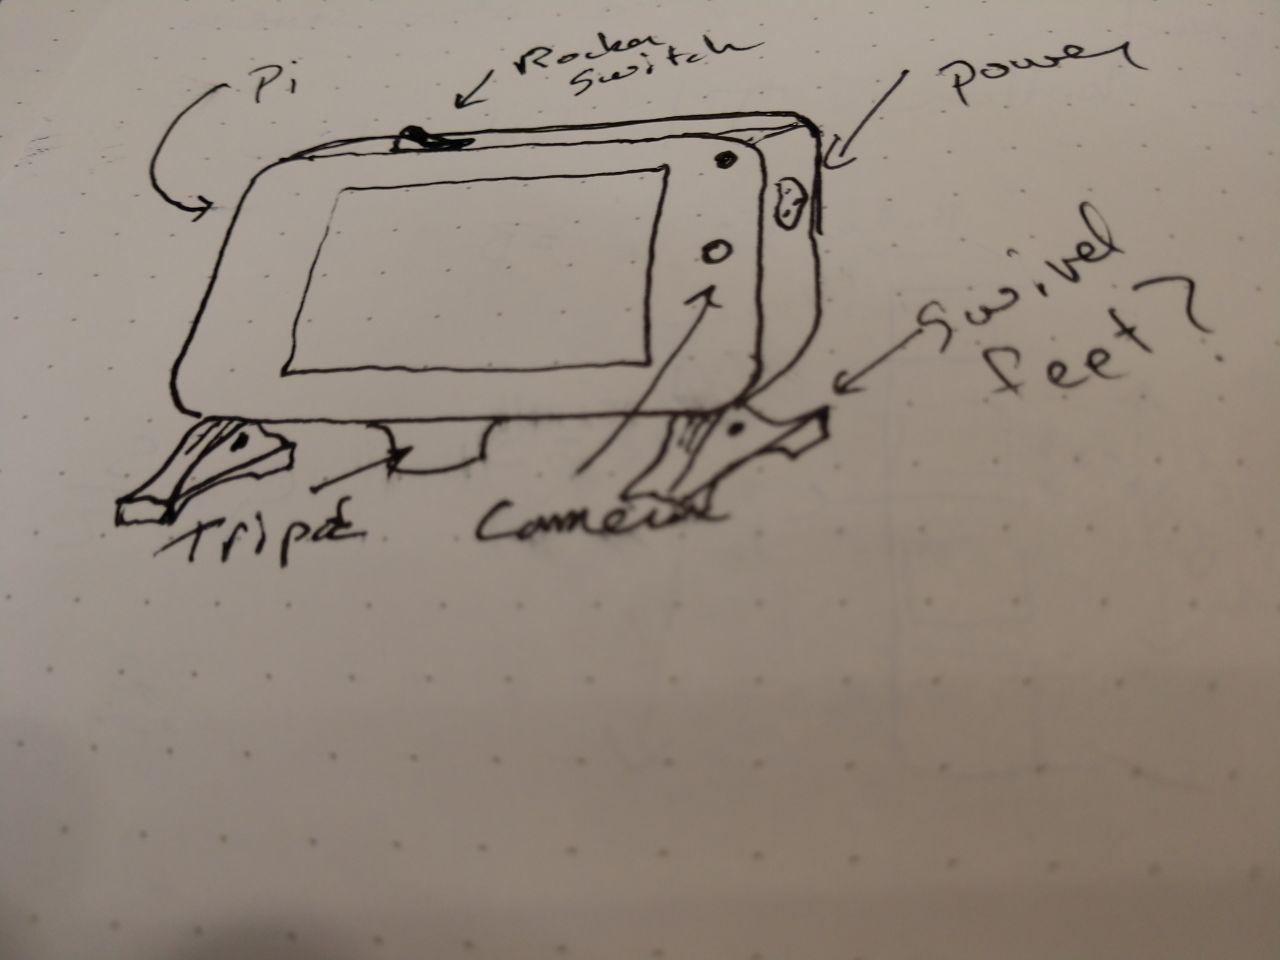 Pi
Rocker
Switch
Power
Swivel
feet?
Tripod
Camera